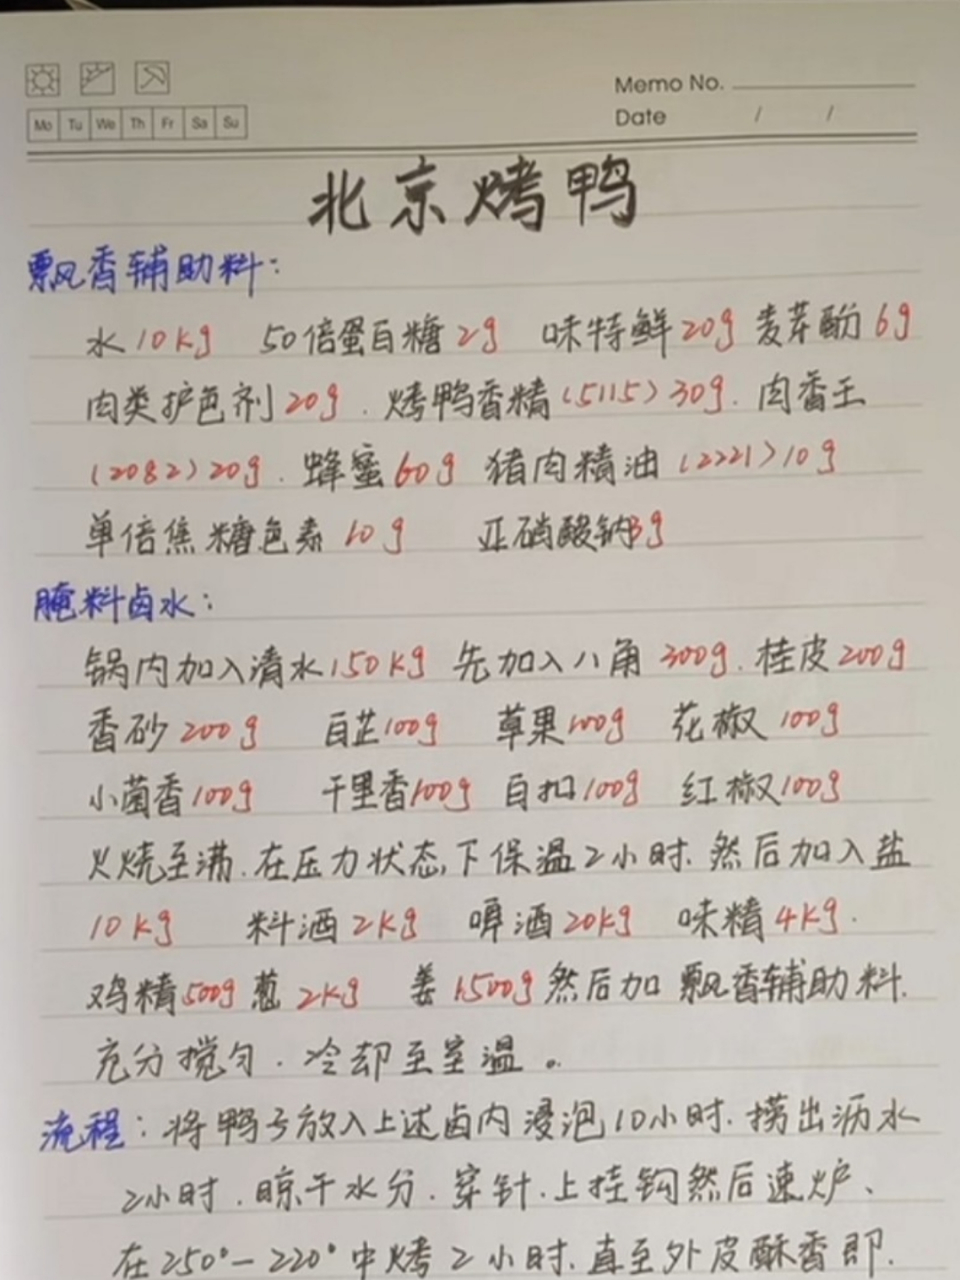 Memo No.
Mo Tu We Th Fr Sa Su
Date / /
北京烤鸭
飘香辅助料:
水10kg 50倍蛋白糖2g 味特鲜20g 麦芽酚6g
肉类护色剂20g. 烤鸭香精(5115)30g. 肉香王
(2082)20g. 蜂蜜60g 猪肉精油(2221)10g
单倍焦糖色素10g 亚硝酸钠3g
腌料卤水:
锅内加入清水150kg 先加入八角300g. 桂皮200g
香砂200g 白芷100g 草果100g 花椒100g
小茴香100g 千里香100g 白扣100g 红椒100g
火烧至沸.在压力状态下保温2小时.然后加入盐
10kg 料酒2kg 啤酒20kg 味精4kg.
鸡精500g 葱2kg 姜1500g 然后加飘香辅助料.
充分搅匀.冷却至室温。
流程:将鸭子放入上述卤内浸泡10小时.捞出沥水
2小时.晾干水分.穿针.上挂钩然后速炉、
在250°-220°中烤2小时.直至外皮酥香即.